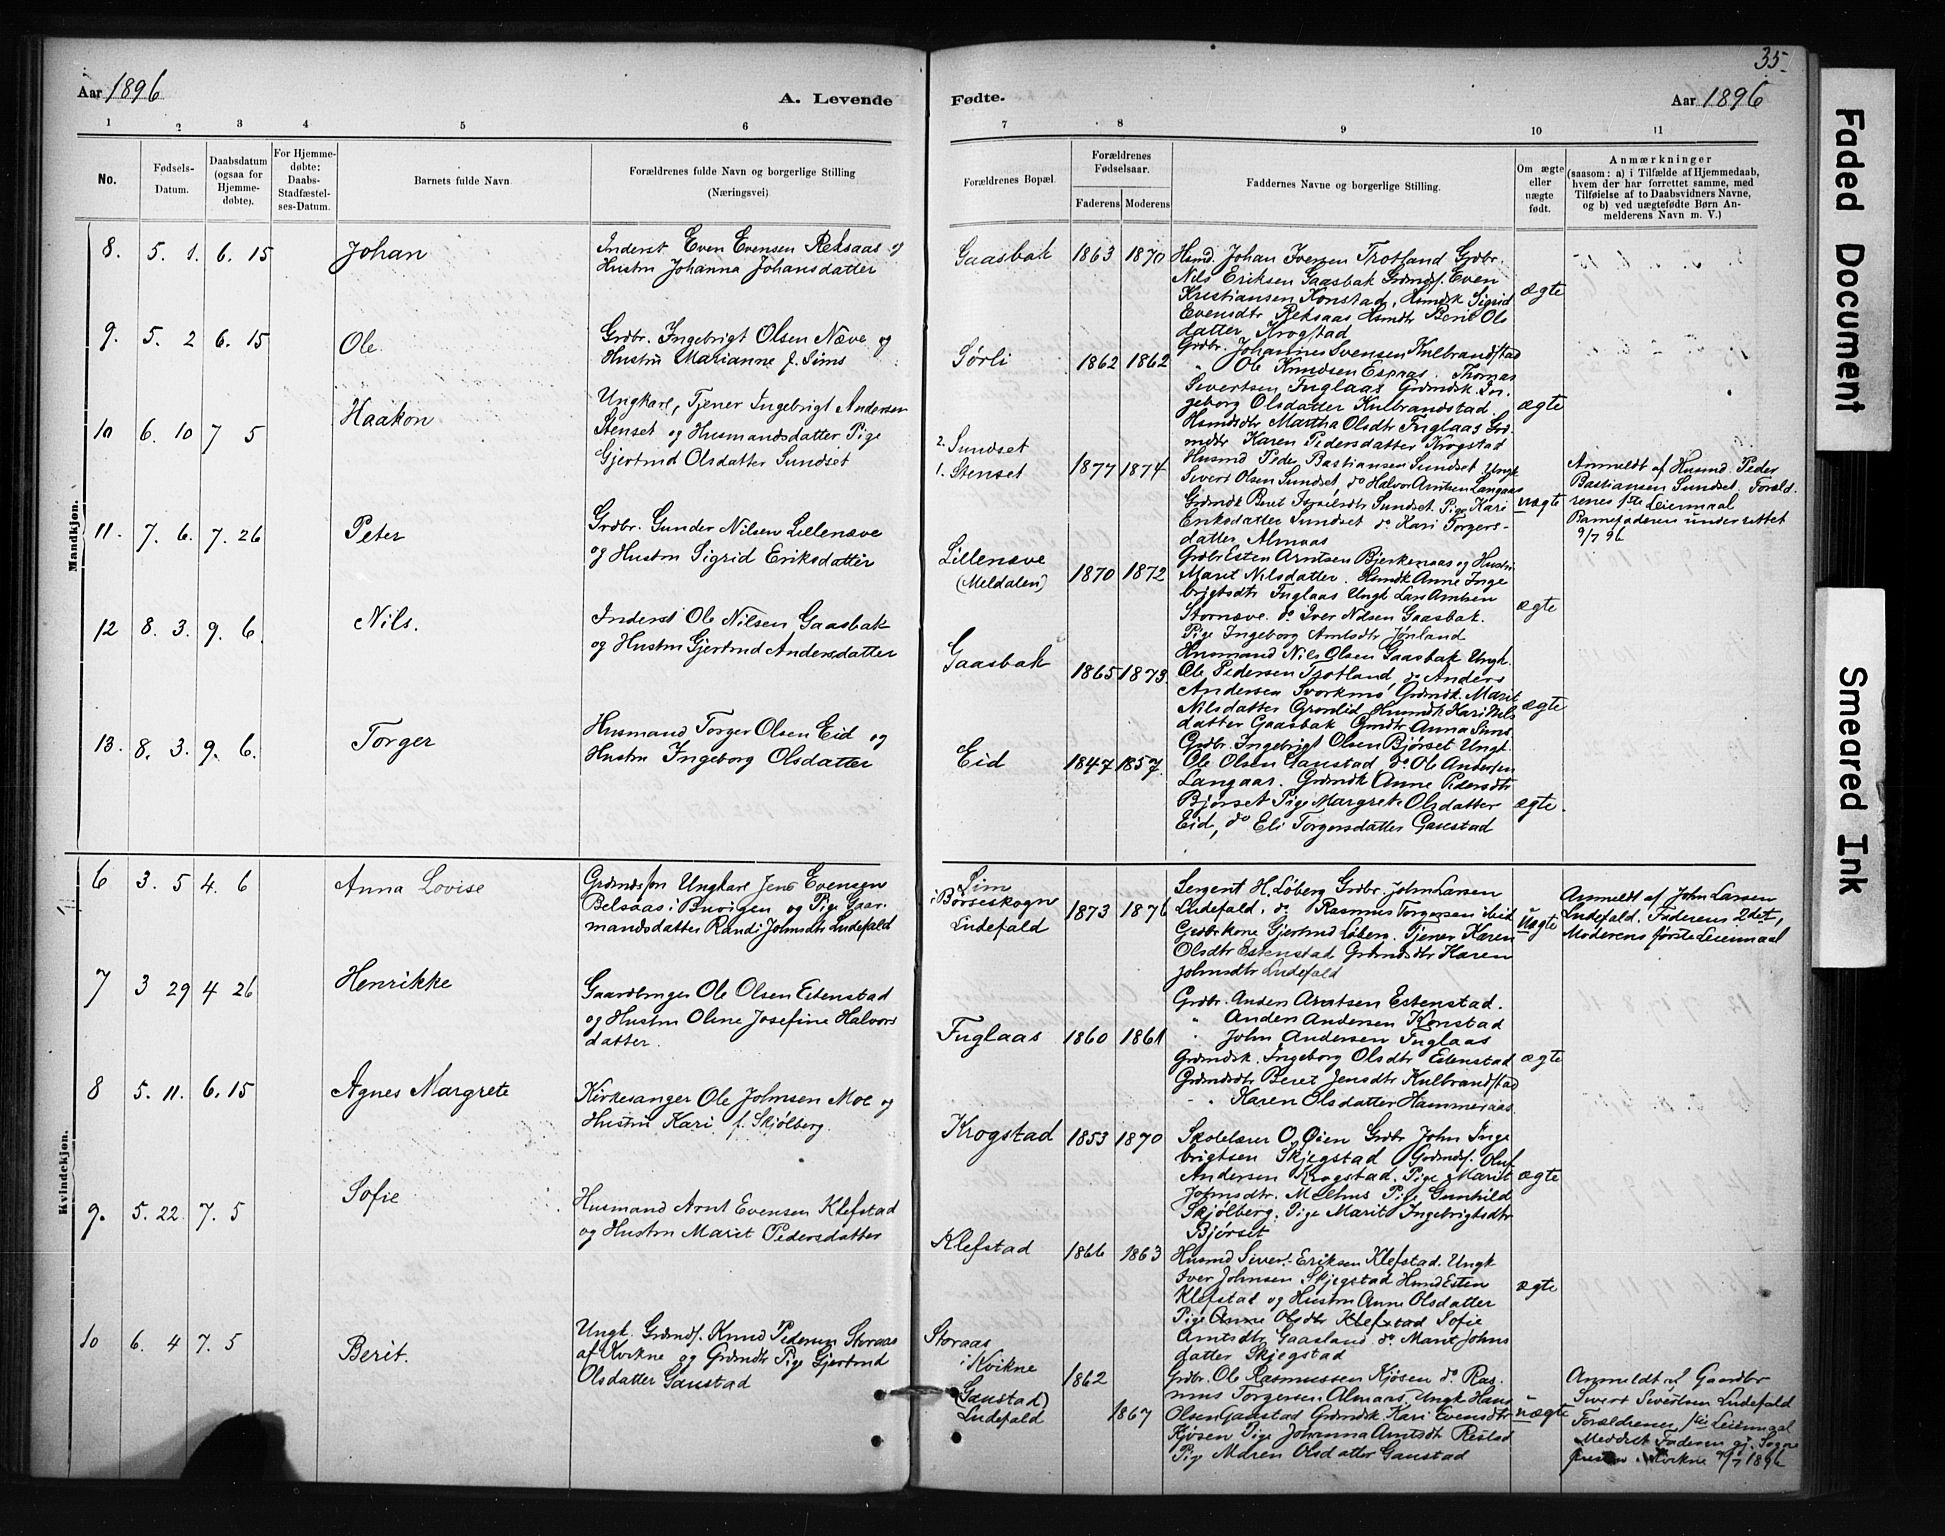 35.
Aar 1896
A. Levende
Fødte.
Aar 1896
1 2 3 4 5 6 7 8 9 10 11
No.
Fødsels-
Datum.
Daabsdatum
(ogsaa for
Hjemme-
døbte).
For Hjemme-
døbte;
Daabs-
Stadfæstel-
ses-Datum.
Barnets fulde Navn.
Forældrenes fulde Navn og borgerlige Stilling
(Næringsvei)
Forældrenes Bopæl.
Forældrenes
Fødselsaar.
Faderens Moderens
Faddernes Navne og borgerlige Stilling.
Om ægte
eller
uægte
født.
Anmærkninger
(saasom: a) i Tilfælde af Hjemmedaab,
hvem der har forrettet samme, med
Tilføielse af to Daabsvidners Navne,
og b) ved uægtefødte Børn An-
melderens Navn m. V.)
Mandkjøn.
8. 5. 1. 6. 15 Johan
Inderst Even Evensen Reksaas og
Hustru Johanna Johansdatter
Gaasbak 1863 1870
Hsmd. Johan Iversen Trotland Grdbr.
Nils Eriksen Gaasbak Grdmdsf. Even
Kristiansen Konstad, Hsmdk Sigrid
Evensdtr Reksaas Hsmdtr Berit Ols
datter Krogstad
ægte
9. 5. 2 6. 15 Ole
Grdbr. Ingebrigt Olsen Næve og
Hustru Marianne f. Sims
Sørli 1862 1862
Grdbr. Johannes Svensen Kulbrandstad
" Ole Knudsen Espaas. Thomas
Sivertsen Fuglaas Grdmdsk In-
geborg Olsdatter Kulbrandstad.
Hsmdsdtr Martha Olsdtr Fuglaas Grd-
mdtr Karen Pedersdatter Krogstad
ægte
10 6. 10 7 5 Haakon
Ungkarl, Tjener Ingebrigt Andersen
Stenset og Husmandsdatter Pige
Gjertrud Olsdatter Sundset
2. Sundset
1. Stenset 1877 1874
Husmd Peder Bastiansen Sundset Ungk
Sivert Olsen Sundset do Halvor Arntsen Langaas
Grdmdk Beret Israelsdtr Sundset Pige Kari
Eriksdatter Sundset do Kari Torgers-
datter Almaas
uægte
Anmeldt af Husmd. Peder
Bastiansen Sundset. Foræld-
renes 1ste Leiermaal
Barnefaderen underrettet
9/7 96
11. 7. 6. 7. 26 Peter
Grdbr. Gunder Nilsen Lillenæve
og Hustru Sigrid Eriksdatter
Lillenæve
(Meldalen) 1870 1872
Grdbr Esten Arntsen Bjerkenaas og Hustru
Marit Nilsdatter. Hsmdk Anne Inge
brigtsdtr Fuglaas Ungk Lars Arntsen
Stornæve. do Iver Nilsen Gaasbak.
Pige Ingeborg Arntsdtr Jønland
ægte
12 8. 3. 9. 6. Nils.
Inderst Ole Nilsen Gaasbak
og Hustru Gjertrud Andersdatter
Gaasbak 1865 1873.
Husmand Nils Olsen Gaasbak Ungk.
Ole Pedersen Trotland do Anders
Andersen Svorkmo Grdmdk. Marit
Nilsdatter Gronlid Husmdk Kari Nils
datter Gaasbak Grdmdtr Anna Sims
ægte
13. 8. 3. 9. 6. Torger
Husmand Torger Olsen Eid og
Hustru Ingeborg Olsdatter
Eid 1847 1857.
Grdbr. Ingebrigt Olsen Bjørset Ungk.
Ole Olsen Gaustad do Ole Andersen
Langaas. Grdmdk Anne Pedersdtr
Bjørset Pige Margrete Olsdatter
Eid, do Eli Torgersdatter Gaustad
ægte.
Kvindekjøn.
6 3. 5 4. 6 Anna Lovise
Grdmdssøn Ungkarl Jens Evensen
Belsaas i Buvigen og Pige Gaar-
mandsdatter Randi Johnsdtr Ludefald
Lim
i Børseskogn
Ludefald 1873 1876
Sergent H. Løberg Grdbr. John Larsen
Ludefald, do Rasmus Torgersen ibid
Grdbrkone Gjertrud Løberg. Tjener Karen
Olsdtr Estenstad Grdmdsdtr Karen
Johnsdtr Ludefald
uægte
Anmeldt af John Larsen
Ludefald. Faderens 2det,
Moderens første Leiermaal
7 3 29 4 26 Henrikke
Gaardbruger Ole Olsen Estenstad
og Hustru Oline Josefine Halvors
datter.
Fuglaas 1860 1861
Grdbr. Anders Arntsen Estenstad.
" Anders Andersen Konstad
" John Andersen Fuglaas
Grdmdsk. Ingeborg Olsdtr Estenstad
Grdmdsdtr Beret Jensdtr Kulbrandstad
" Karen Olsdatter Hammeraas
ægte
8 5. 11. 6. 15 Agnes Margrete
Kirkesanger Ole Johnsen Moe og
Hustru Kari f. Skjølberg.
Krogstad 1853 1870
Skolelærer O. Øien Grdbr John Inge
brigtsen Skjegstad Grdmdsf. Oluf
Andersen Krogstad. Pige Marit
Johnsdtr. Melhus Pige Gunhild
Skjølberg. Pige Marit Ingebrigtsdtr
Bjørset
ægte
9. 5. 22. 7. 5 Sofie
Husmand Arnt Evensen Klefstad
og Hustru Marit Pedersdatter
Klefstad 1866 1863
Husmd Sivert Eriksen Klefstad. Ungk
Iver Johnsen Skjegstad Husmd Esten
Klefstad og Hustru Anne Olsdatter
Pige Anne Olsdtr Klefstad Sofie
Arntsdtr Gaasland do Marit Johns
datter Skjegstad
ægte
10 6. 4 7. 5 Berit.
Ungk. Grdmdsf. Knud Pedersen Storaas
af Kvikne og Grdmdtr Pige Gjertrud
Olsdatter Gaustad
Storaas
i Kvikne
(Gaustad)
Ludefald 1862 1867
Grdbr. Ole Rasmussen Kjøsen do Ras-
mus Torgersen Almaas, Ungk Hans
Olsen Gaustad Grdmdk. Kari Evensdtr
Kjøsen Pige Johanna Arntsdtr Restad
Pige Maren Olsdatter Gaustad
uægte
Anmeldt af Gaardbr
Sivert Sivertsen Ludefald
Forældrenes 1ste Leiermaal
Meddelt Faderen gj. Sogne
presten i Kvikne 9/7 1896
Faded Document
Smeared Ink